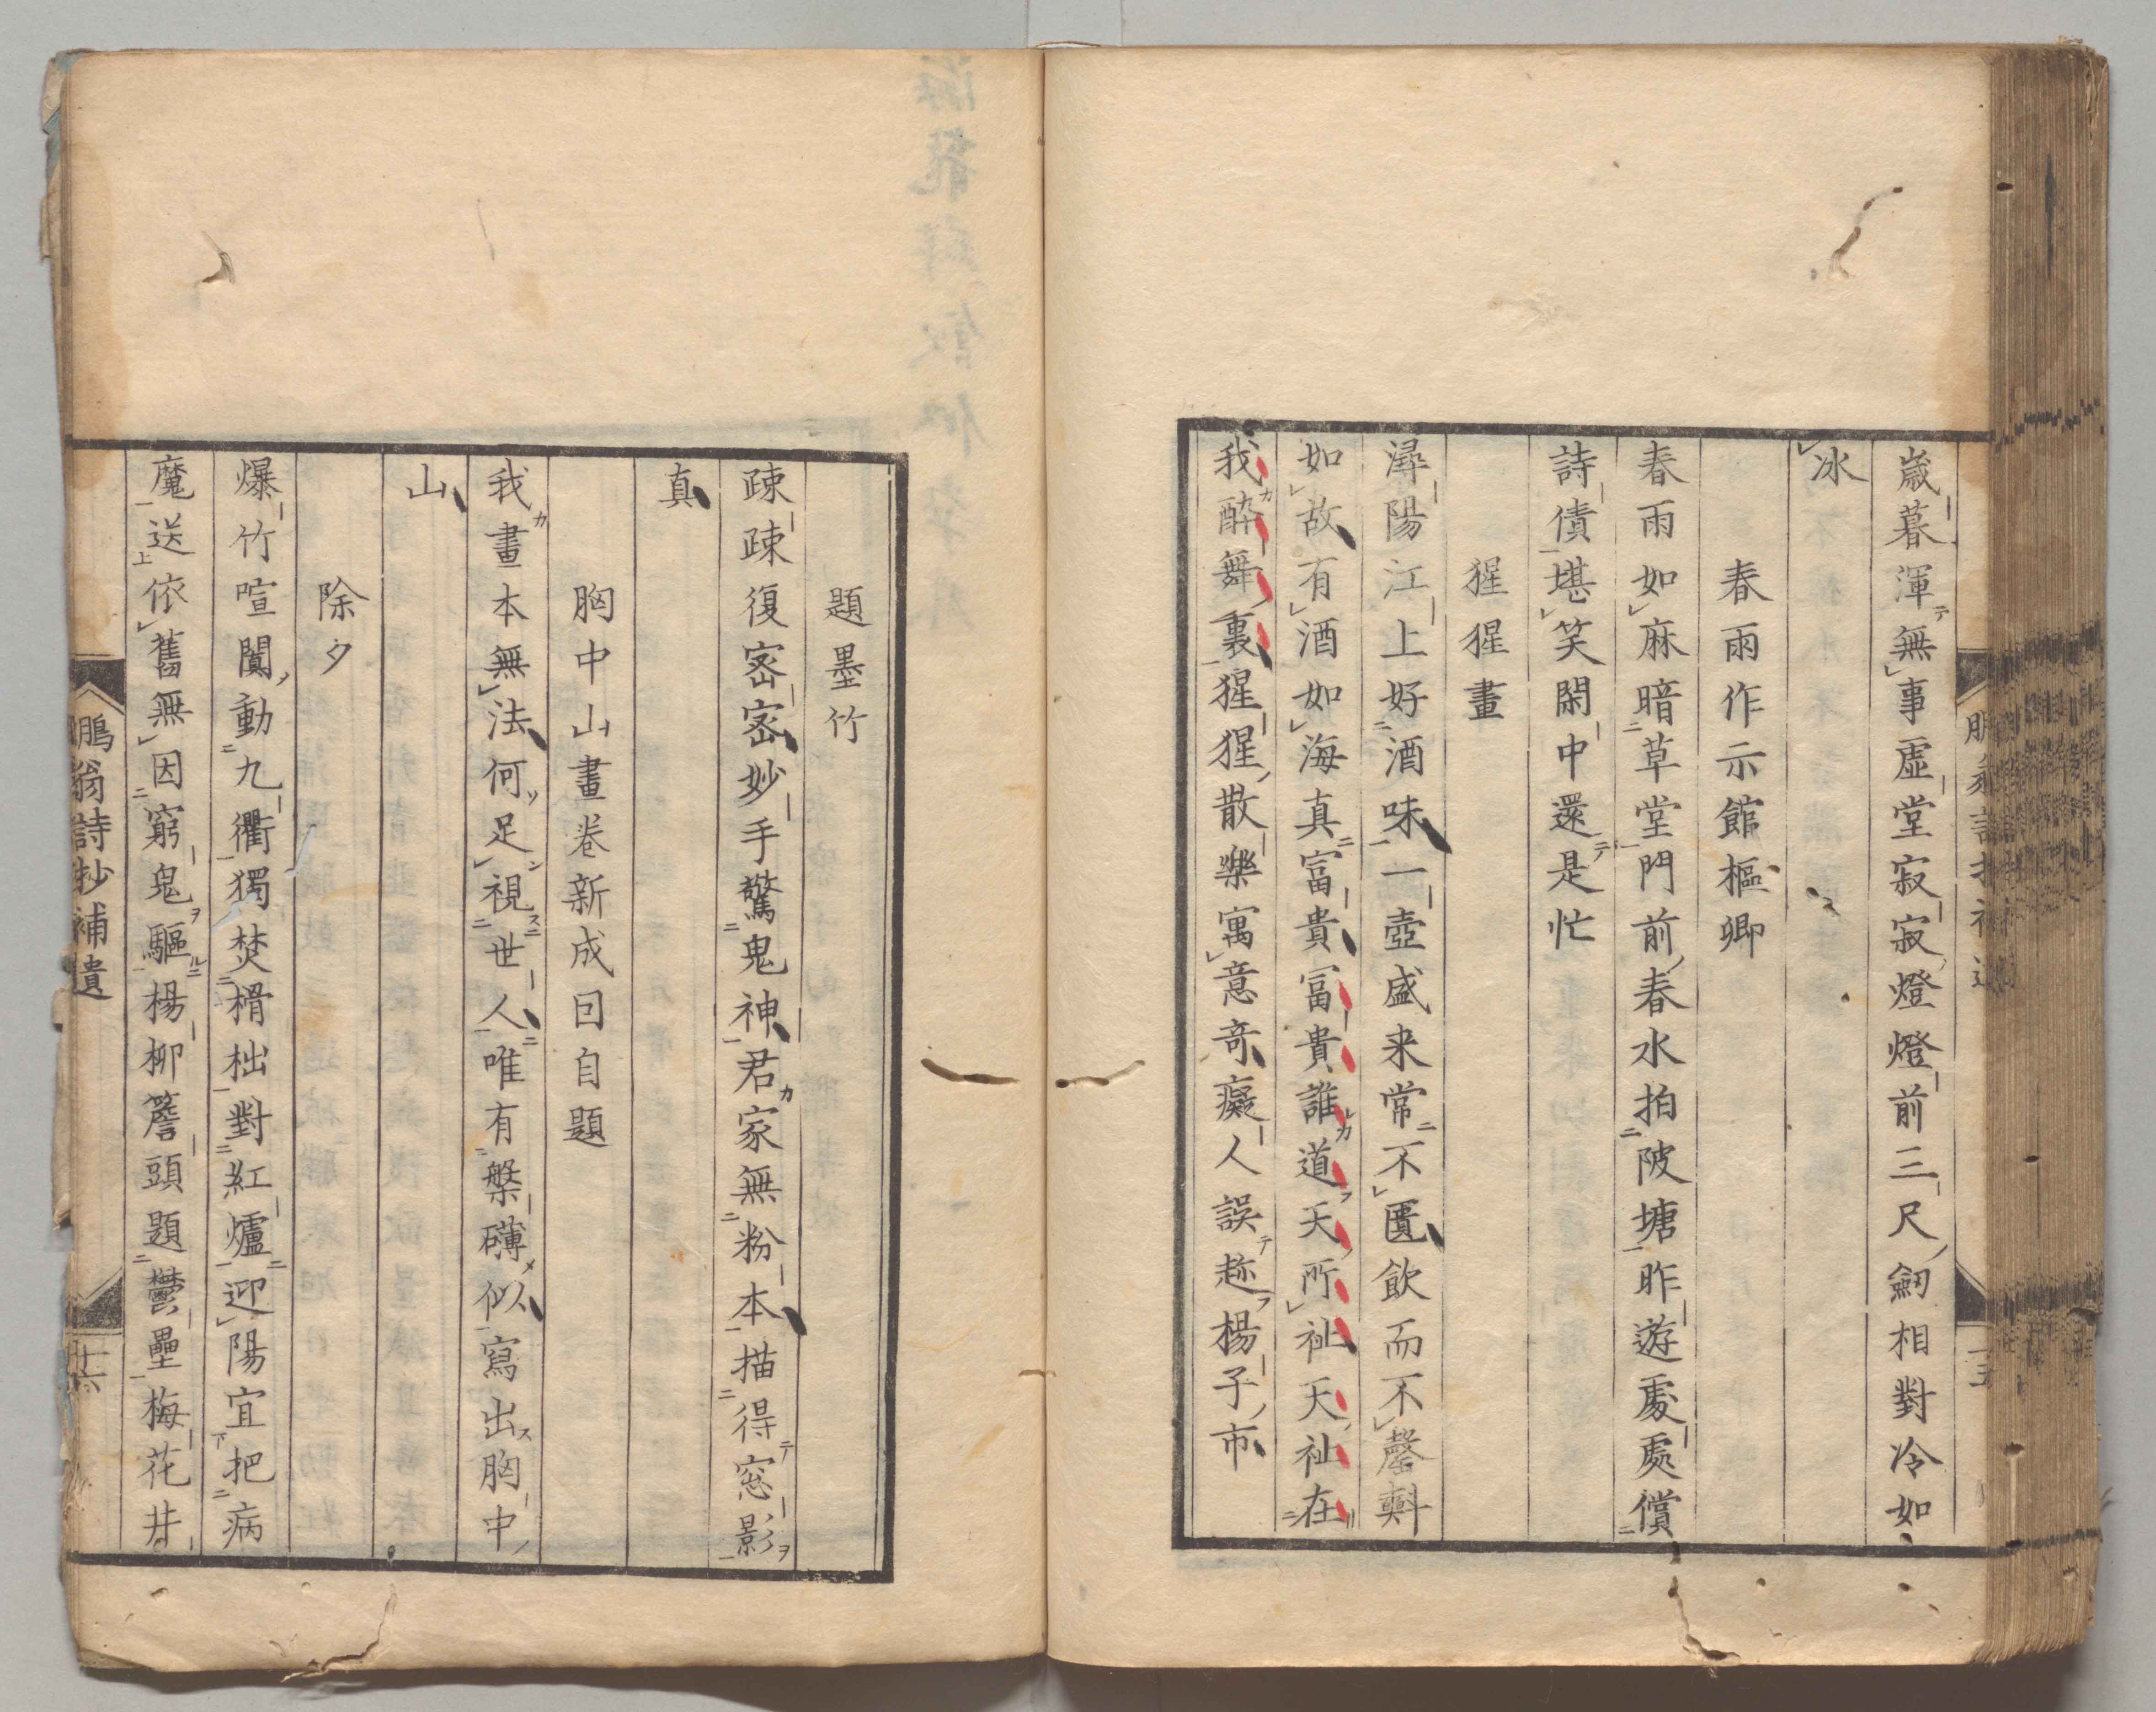 歳暮渾無事虚堂寂寂燈燈前三尺劒相對冷如
冰
春雨作示館樞卿
春雨如麻暗草堂門前春水拍陂塘昨遊處處償
詩債堪笑閑中還是忙
猩猩畫
潯陽江上好酒味一壺盛来常不匱飲而不罄斟
如故有酒如海真富貴冨貴誰道天所祉天祉在
我酔舞裏猩猩散樂寓意奇癡人誤趂楊子市
題墨竹
疎疎復宻宻妙手驚鬼神君家無粉本描得窓影
真
胸中山畫卷新成因自題
我畫本無法何足視世人唯有槃礴似寫出胸中
山
除夕
爆竹喧闐動九衢獨焚榾柮對紅爐迎陽宜把病
魔送依舊無因窮鬼驅楊柳簷頭題鬱壘梅花井
鵬翁詩抄補遺
十六